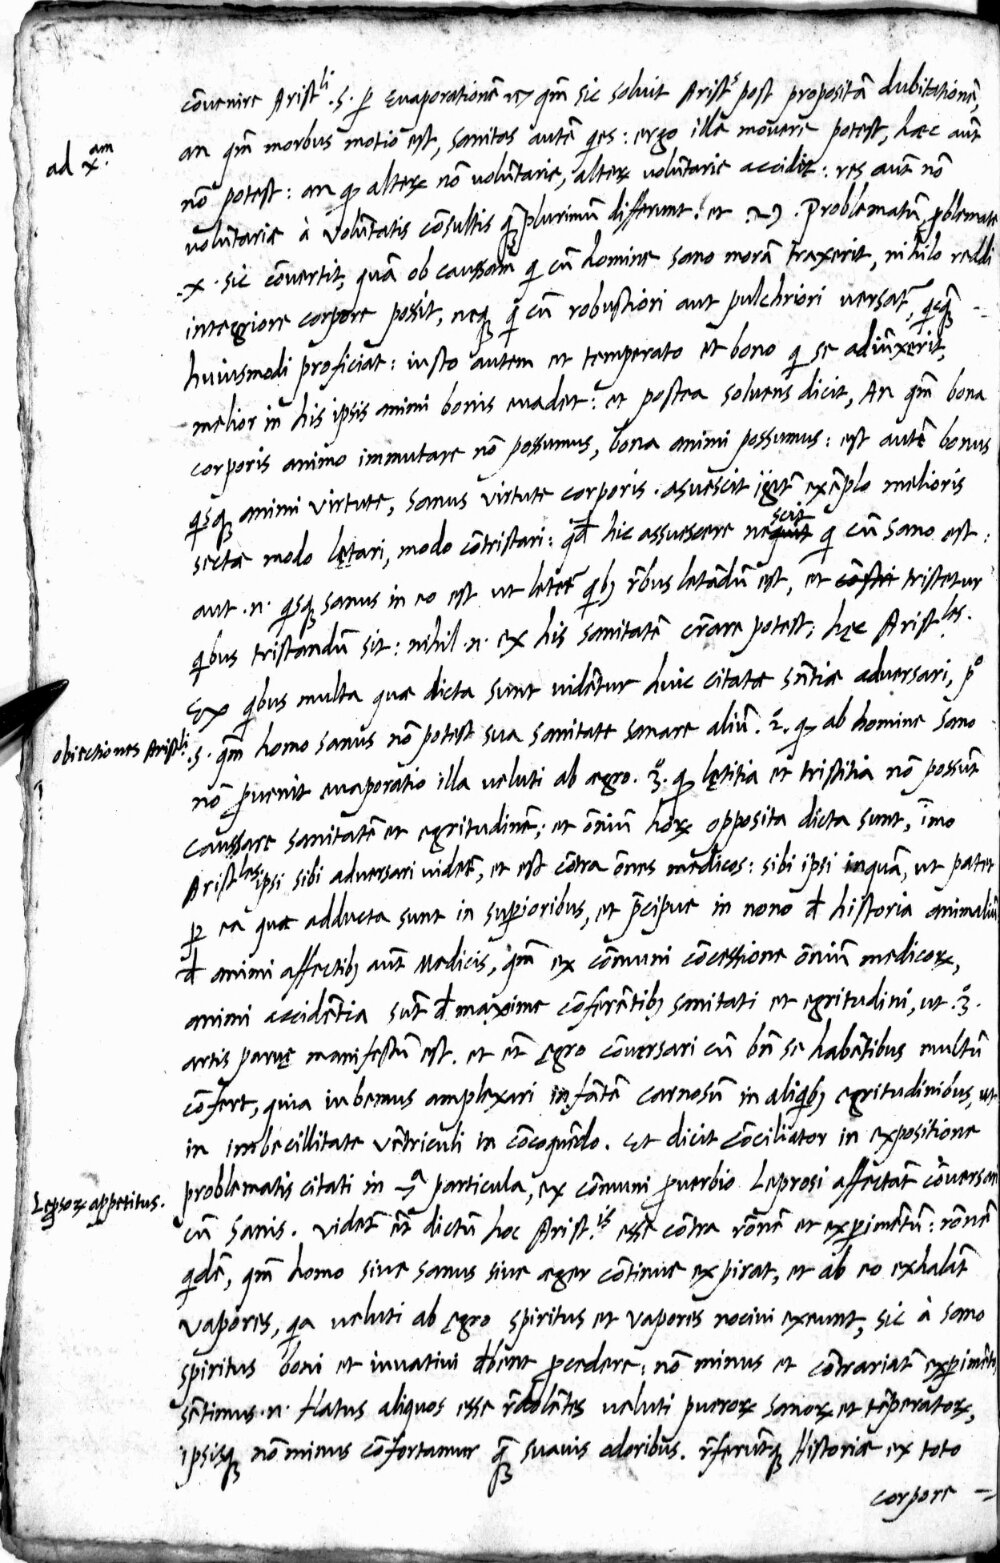 convenire Arist.li .s. p evaporationẽ ⁊ qm̃ sic soluit Arist.s post propositã dubitationẽ,
ad x.am
an qm̃ morbus motio est, sanitas autẽ qes: ergo ille movere potest, hæc aũt
nõ potest: an q alterꝝ nõ volũtarie, alterꝝ volũtarie accidit: res aũt nõ
voluntariæ à volũtatis consultis q̃plurimũ differunt: et . Problematũ, problemate
.x. sic convertit, quã ob caussam qi cũ homine sano morã traxerit, nihilo reddi
integriore corpore possit, neqꝫ qi cũ robustiori aut pulchriori versat̃, qcq̃
huiusmodi proficiat: iusto autem et temperato et bono qi se adiũxerit,
melior in his ipsis animi bonis evadet: et postea solvens dicit, An qm̃ bona
corporis animo immutare nõ possumus, bona animi possumus: est autẽ bonus
qsqꝫ animi virtute, sanus virtute corporis. asuescit igit̃ exẽplo melioris
sectæ modo lętari, modo cõtristari: qđ hic assuescere nequit scit qi cũ sano est:
aut .n. qsqꝫ sanus in eo est ut letet̃ qbꝫ rẽbus letãdũ est, et constri tristetur
qbus tristandũ sit: nihil .n. ex his sanitatẽ crẽare potest; hęc Arist.les.
Ex qbus multa quæ dicta sunt videntur huic citatæ sñtiæ adversari, pº
obiectiones Aristli.
.s. qm̃ homo sanus nõ potest sua sanitate sanare aliũ. 2º. q ab homine sano
nõ pvenit evaporatio illa veluti ab ægro. 3º. q lętitia et tristitia nõ possũt
caussare sanitatẽ et egritudinẽ; et oĩniũ horꝝ opposita dicta sunt, imo
Aristles ipsi sibi adversari videt̃, et est cõtra oẽs medicos: sibi ipsi inquã, ut patet
p ea quæ adducta sunt in supioribus, et pcipue in nono đ historia animaliũ
đ animi affectibꝫ aũt Medicis, qm̃ ex cõmuni cõcessione oĩniũ medicorꝝ,
animi accidẽtia sũt đ maxime cõferẽtibꝫ sanitati et egritudini, ut .3º.
artis parvę manifestũ est. et et̃ ęgro cõversari cũ bñ se habẽtibus multũ
cõfert, quia iubemus amplexari infãtẽ carnosũ in aliqbꝫ egritudinibus, ut
in imbecillitate vẽtriculi in cõcoquẽdo. Et dicit cõciliator in expositione
problematis citati in particula, ex cõmuni pverbio Leprosi affectãt cõversari
Lepsorꝝ appetitus.
cũ sanis. videt̃ et̃ dictũ hoc Arist.is esse cõtra rõnẽ et expimẽtũ: rõnẽ
qdẽ, qm̃ homo sive sanus sive æger cõtinue expirat, et ab eo exhalãt
vapores, qa veluti ab ęgro spiritus et vapores nocivi exeunt, sic à sano
spiritus boni et iuvativi đbent pcedere; nõ minus et cõtrariat̃ expimẽto,
sẽtimus .n. flatus aliquos esse rẽdolẽtes veluti puerorꝝ sanorꝝ et tẽperatorꝝ,
ipsisqꝫ nõ minus cõfortamur q̃ suavis odoribus. rẽferũtqꝫ Historiæ ex toto
corpore